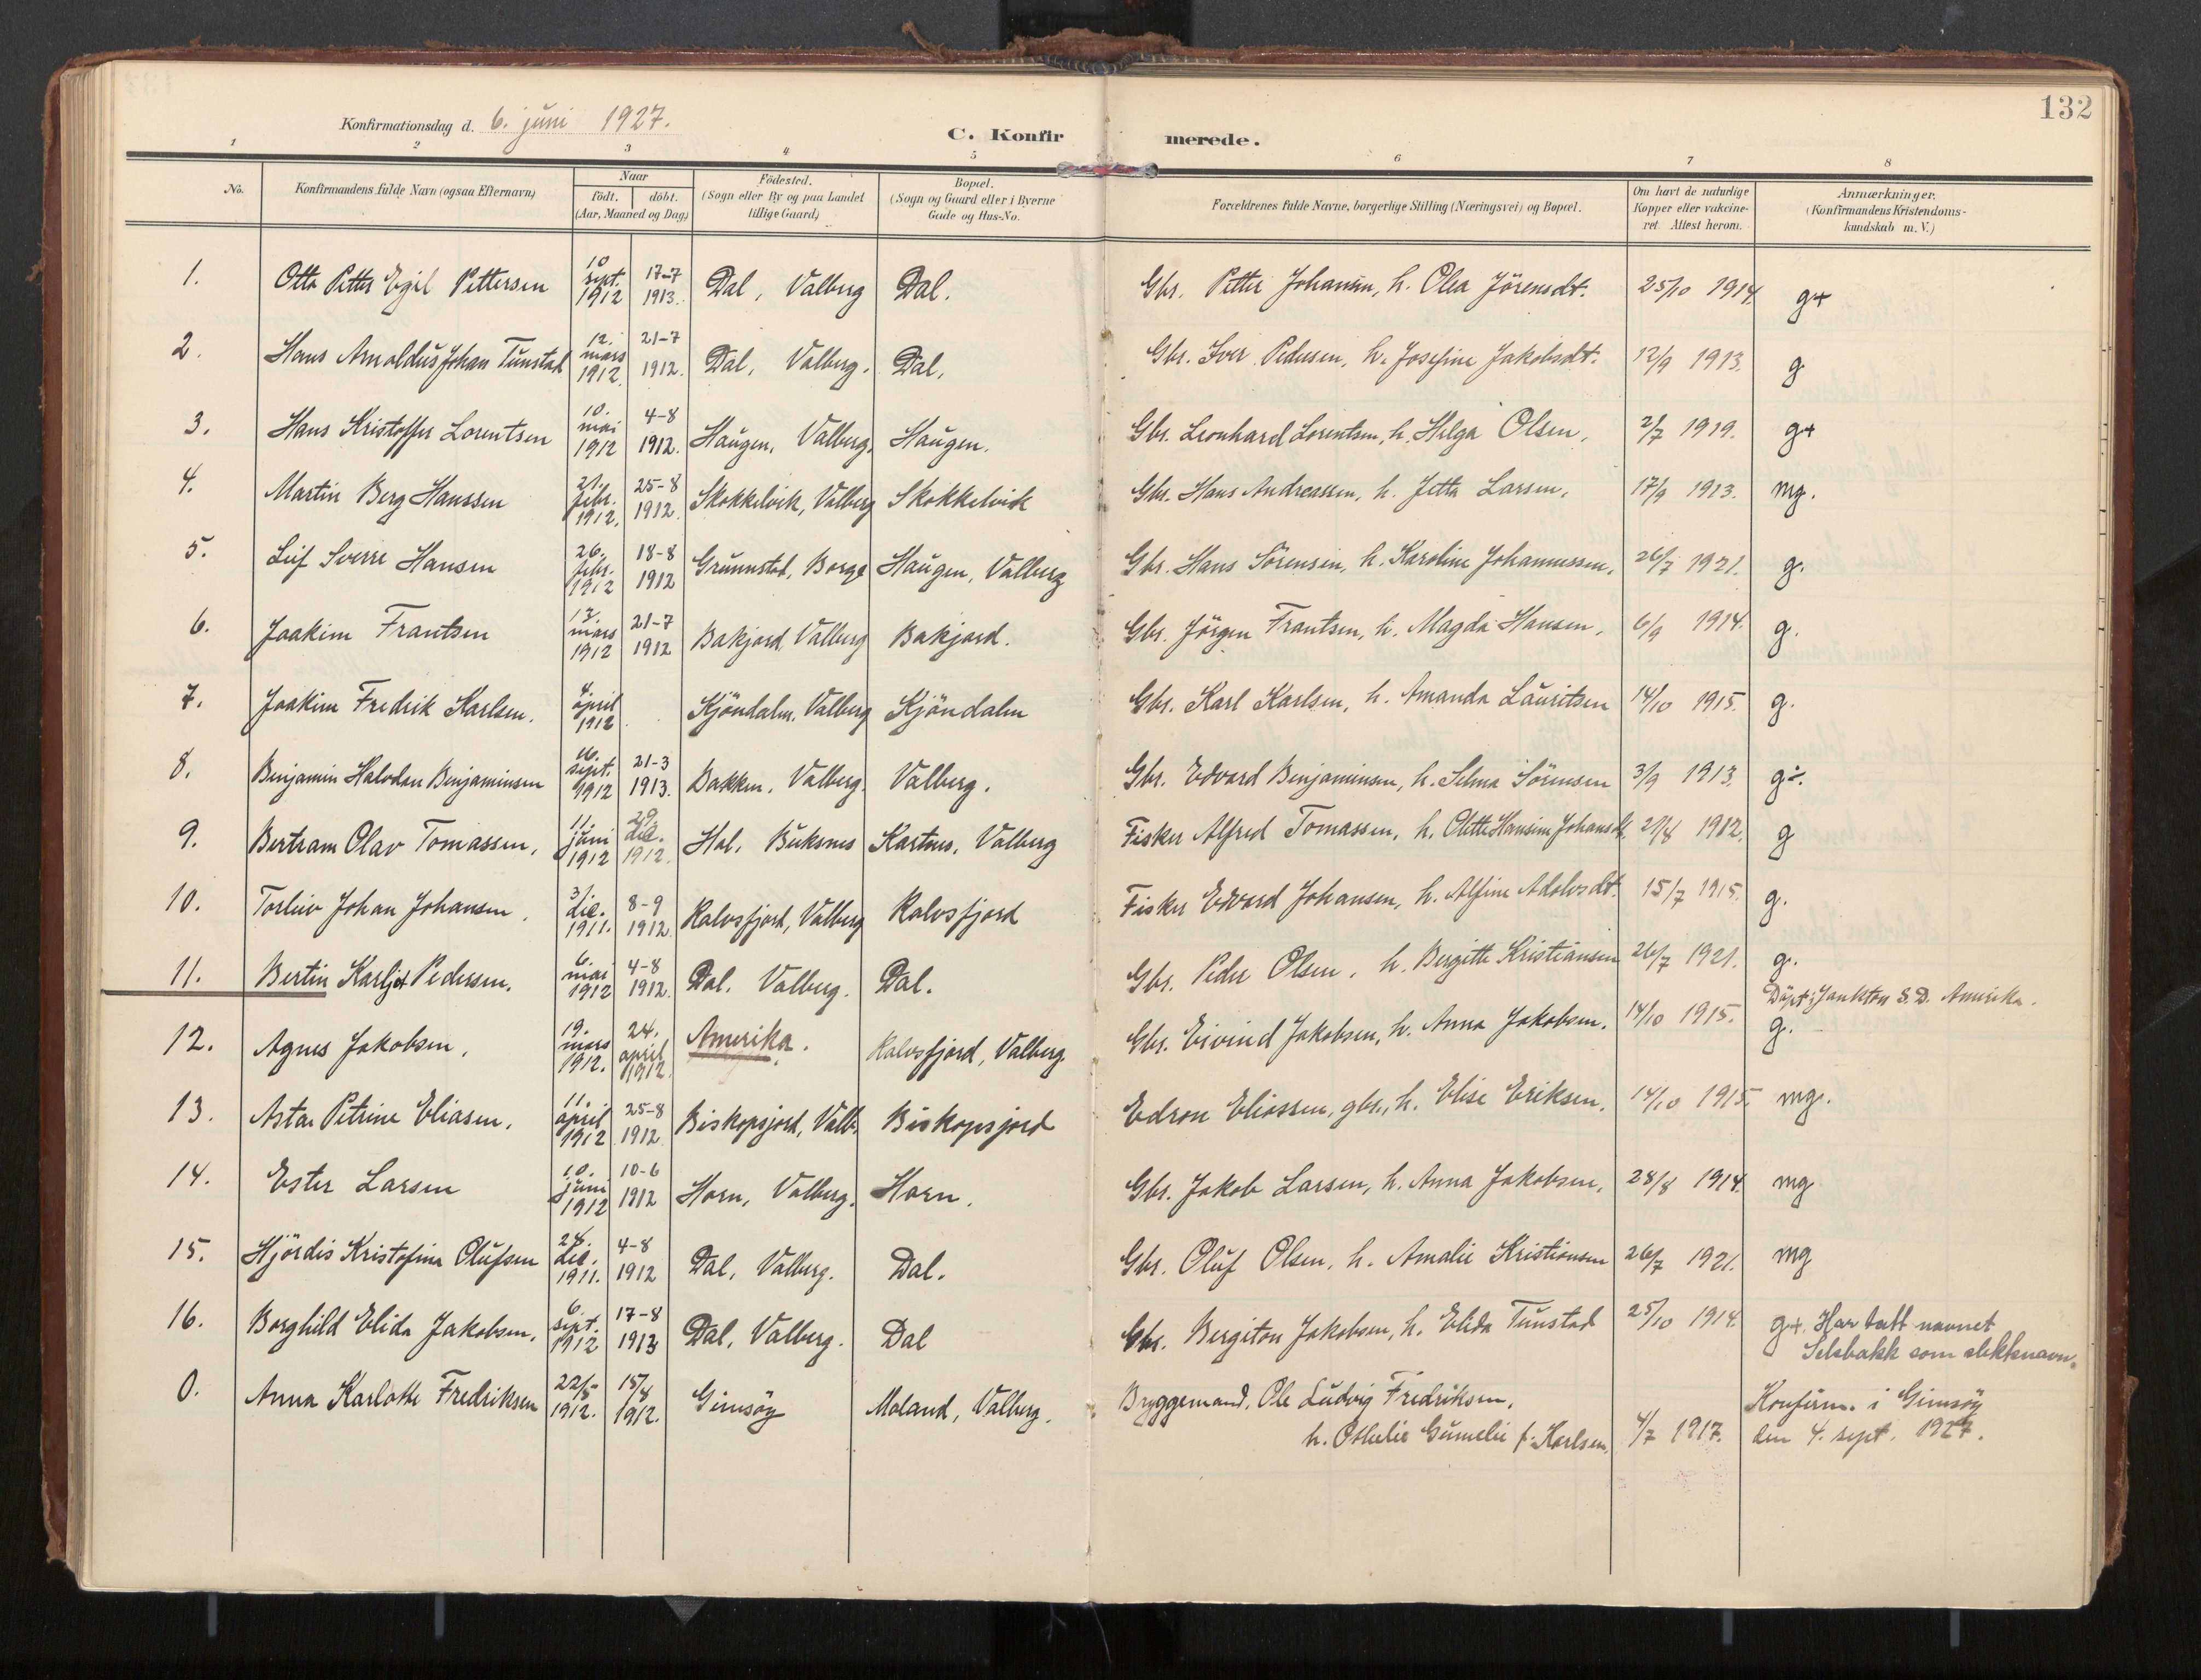 132
Konfirmationsdag d. 6. juni 1927.
C. Konfirmerede.
1 2 3 4 5 6 7 8
No. | Konfirmandens fulde Navn (ogsaa Efternavn) | Naar født. døbt. (Aar, Maaned og Dag) | Födested. (Sogn eller By og paa Landet tillige Gaard) | Bopæl. (Sogn og Gaard eller i Byerne Gade og Hus-No. | Forældrenes fulde Navne, borgerlige Stilling (Næringsvei) og Bopæl. | Om havt de naturlige Kopper eller vakcineret. Attest herom. | Anmærkninger. (Konfirmandens Kristendomskundskab m. V.)
1. Otto Petter Egil Pettersen 10 sept. 1912 17-7 1913. Dal, Valberg Dal. Gbr. Petter Johansen, h. Olea Jörensdt. 25/10 1914. g+
2. Hans Arnoldus Johan Tunstad 12. mars 1912. 21-7 1912. Dal, Valberg. Dal. Gbr. Iver Pedersen, h. Josefine Jakobsdt. 12/9 1913. g
3. Hans Kristoffer Lorentsen 10. mai 1912 4-8 1912. Haugen, Valberg. Haugen. Gbr. Leonhard Lorentsen, h. Helga Olsen. 2/7 1919. g+
4. Martin Berg Hanssen 21. febr. 1912. 25-8 1912. Skokkelvik, Valberg Skokkelvik Gbr. Hans Andreassen, h. Jetta Larsen. 17/9 1913. mg.
5. Leif Sverre Hansen 26. febr. 1912 18-8 1912 Grunnstad, Borge Haugen, Valberg Gbr. Hans Sörensen, h. Karoline Johannessen. 26/7 1921. g.
6. Joakim Frantsen 13. mars 1912 21-7 1912 Bakjord, Valberg Bakjord. Gbr. Jörgen Frantsen, h. Magda Hansen. 6/9 1914. g.
7. Joakim Fredrik Karlsen. 4. april 1912 Kjöndalen, Valberg Kjöndalen Gbr. Karl Karlsen, h. Amanda Lauritsen 14/10 1915. g.
8. Benjamin Halvdan Benjaminsen 16. sept. 1912 21-3 1913. Bakken, Valberg. Valberg. Gbr. Edvard Benjaminsen, h. Selma Sörensen 3/9 1913. g÷.
9. Bertram Olav Tomassen. 11. juni 1912 29. dec. 1912. Hol, Buksnes Kartnes, Valberg Fisker Alfred Tomassen, h. Olette Hansine Johansdt. 27/8 1912. g
10. Torleiv Johan Johansen. 31. dec. 1911. 8-9 1912. Ralvsfjord, Valberg Ralvsfjord Fisker Edvard Johansen, h. Alfine Adolvsdt. 15/7 1915. g.
11. Bertin Karljot Pedersen. 6. mai 1912 4-8 1912. Dal, Valberg. Dal. Gbr. Peder Olsen, h. Bergitte Kristiansen 26/7 1921. g.
12. Agnes Jakobsen. 19. mars 1912. 24. april 1912. Amerika. Ralvsfjord, Valberg Gbr. Eivind Jakobsen, h. Anna Jakobsen. 14/10 1915. Döpt i Jankton S.D. Amerika. g.
13. Asta Petrine Eliasen. 11. april 1912 25-8 1912 Biskopsjord, Valb. Biskopsjord Edron Eliassen, gbr., h. Elise Eriksen. 14/10 1915. mg.
14. Ester Larsen 10. juni 1912 10-6 1912 Horn, Valberg. Horn. Gbr. Jakob Larsen, h. Anna Jakobsen. 28/8 1914. mg
15. Hjördis Kristofina Olufsen 24. dec. 1911. 4-8 1912 Dal, Valberg. Dal. Gbr. Oluf Olsen, h. Amalie Kristiansen 26/7 1921. mg
16. Borghild Elida Jakobsen. 6 sept. 1912 17-8 1913 Dal, Valberg. Dal Gbr. Bergiton Jakobsen, h. Elida Tunstad 25/10 1914. g+. Har tatt navnet
Selsbakk som slektsnavn.
0. Anna Karlotte Fredriksen 22/5 1912. 15/8 1912. Gimsöy Moland, Valberg. Bryggemand, Ole Ludvig Fredriksen, Konfirm. i Gimsöy
h. Othelie Gumelie f. Karlsen. 4/7 1917. den 4. sept. 1927.